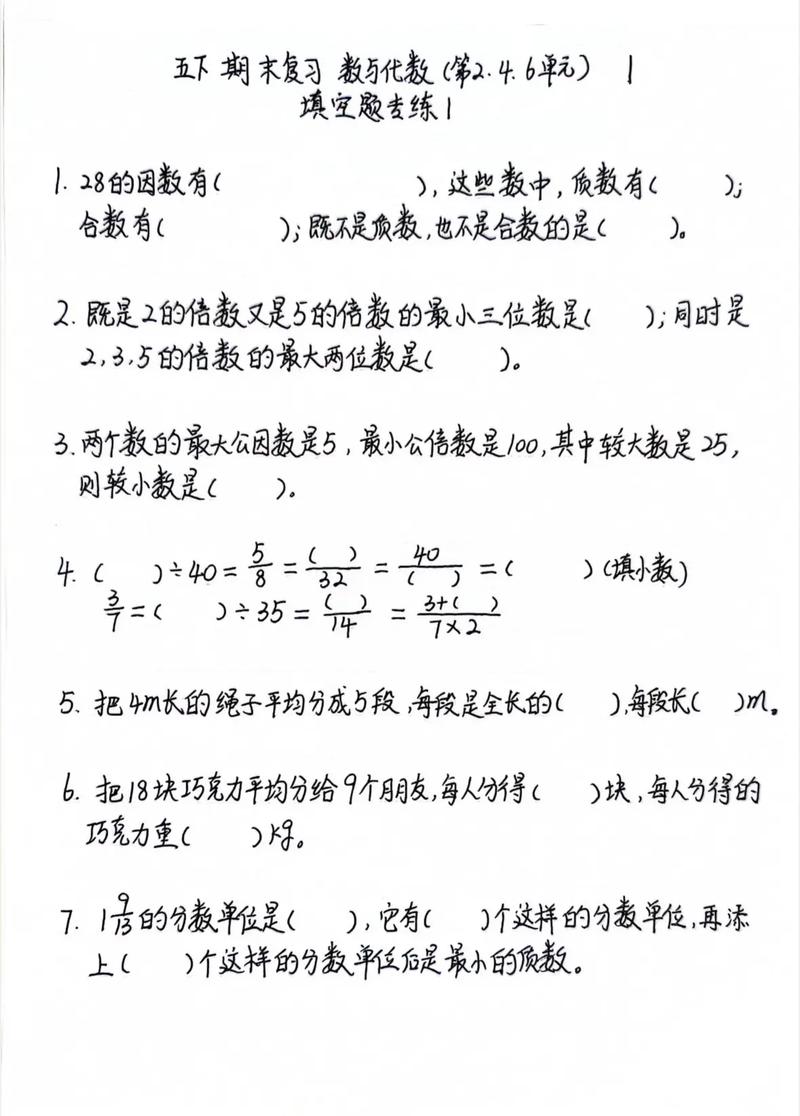 五下 期末复习 数与代数(第2.4.6单元) 1
填空题专练1
1. 28的因数有( ), 这些数中, 质数有( );
合数有( ); 既不是质数, 也不是合数的是( )。
2. 既是2的倍数又是5的倍数的最小三位数是( ); 同时是
2,3,5的倍数的最大两位数是( )。
3. 两个数的最大公因数是5, 最小公倍数是100, 其中较大数是25,
则较小数是( )。
4. ( )÷40=5/8=( )/32=40/( )=( )(填小数)
3/7=( )÷35=( )/14=3+( )/7×2
5. 把4m长的绳子平均分成5段, 每段是全长的( ), 每段长( )m。
6. 把18块巧克力平均分给9个朋友, 每人分得( )块, 每人分得的
巧克力重( )kg。
7. 1 9/13的分数单位是( ), 它有( )个这样的分数单位, 再添
上( )个这样的分数单位后是最小的质数。